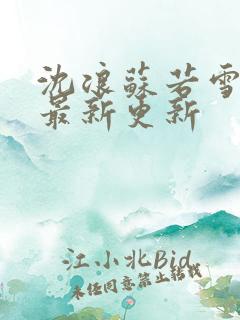 沈浪蘇若雪
最新更新
江小北Bid
未经同意禁止转载